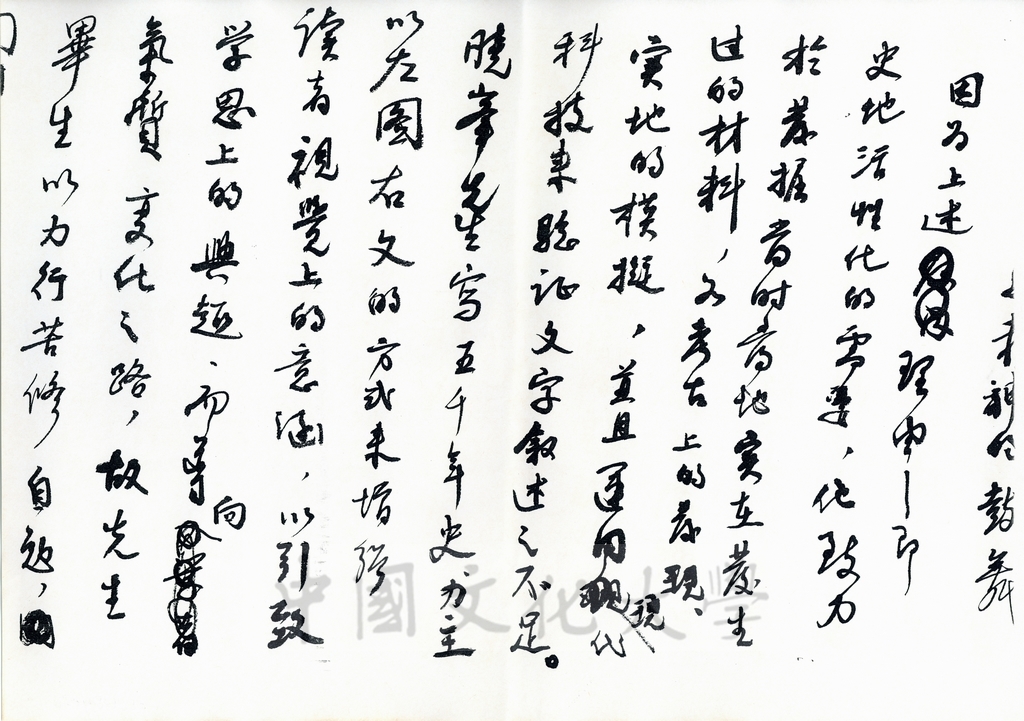 鼓舞
因为上述理由—即
史地活性化的需要，他致力
於發掘當時當地實在發生
过的材料，如考古上的發現、
實地的模擬，並且運用現代
科技來驗证文字敘述之不足。
曉峯先生寫五千年史为主
以左圖右文的方式来增強
读者視覺上的意涵，以引致
学思上的興趣、而導向
氣質变化之路，故先生
畢生以力行苦修自勉，
中國文化大學